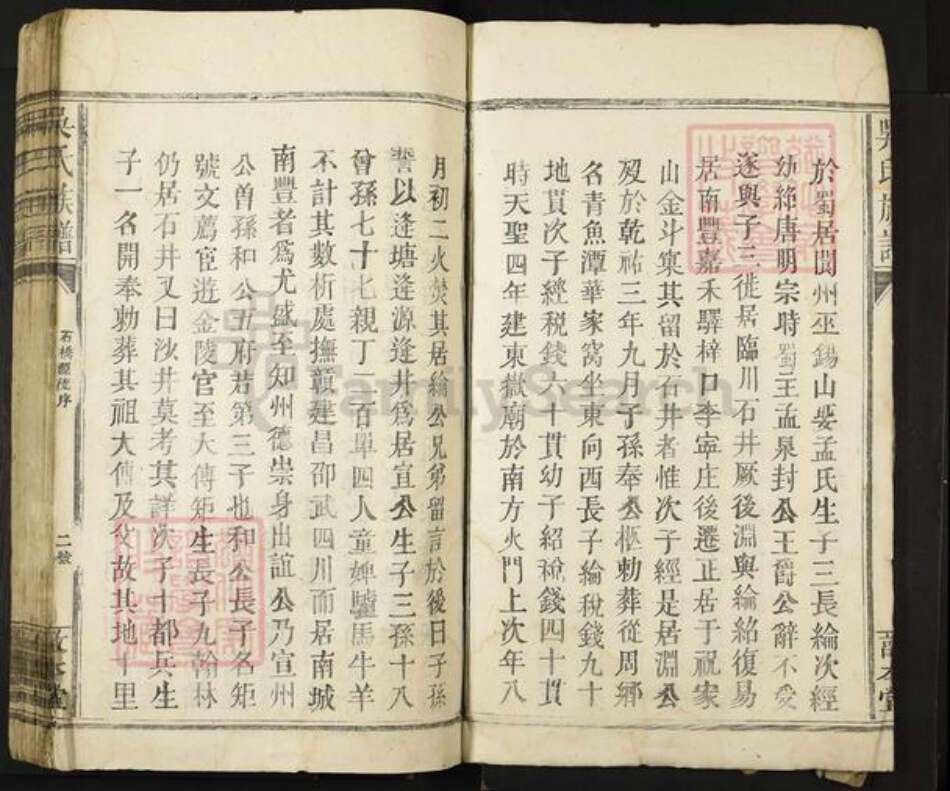 於蜀居閬州巫錫山娶孟氏生子三長綸次經
幼紹唐明宗時蜀王孟泉封公王爵公辭不受
遂與子三徙居臨川石井厥後淵與綸紹復易
居南豐嘉禾驛梓口李寧庄後遷正居于祝家
山金斗寨其留於石井者惟次子經是居淵公
歿於乾祐三年九月子孫奉公柩勅葬從周鄉
名青魚潭華家窩坐東向西長子綸稅錢九十
地貫次子經稅錢六十貫幼子紹稅錢四十貫
時天聖四年建東嶽廟於南方火門上次年八
月初二火焚其居綸公兄弟留言於後日子孫
誓以逢塘逢源逢井爲居宜公生子三孫十八
曾孫七十七親丁二百單四人童婢驢馬牛羊
不計其數析處撫贛建昌邵武四川而居南城
南豐者爲尤盛至知州德崇身出誼公乃宣州
公曾孫和公五府君第三子也和公長子名矩
號文藨宦遊金陵官至大傅矩生長子九翰林
仍居石井又曰沙井莫考其詳次子十都兵生
子一名開奉勅葬其祖大傅及父故其地十里
吳氏族譜
石橋源流序
二號
敦本堂
FamilySearch